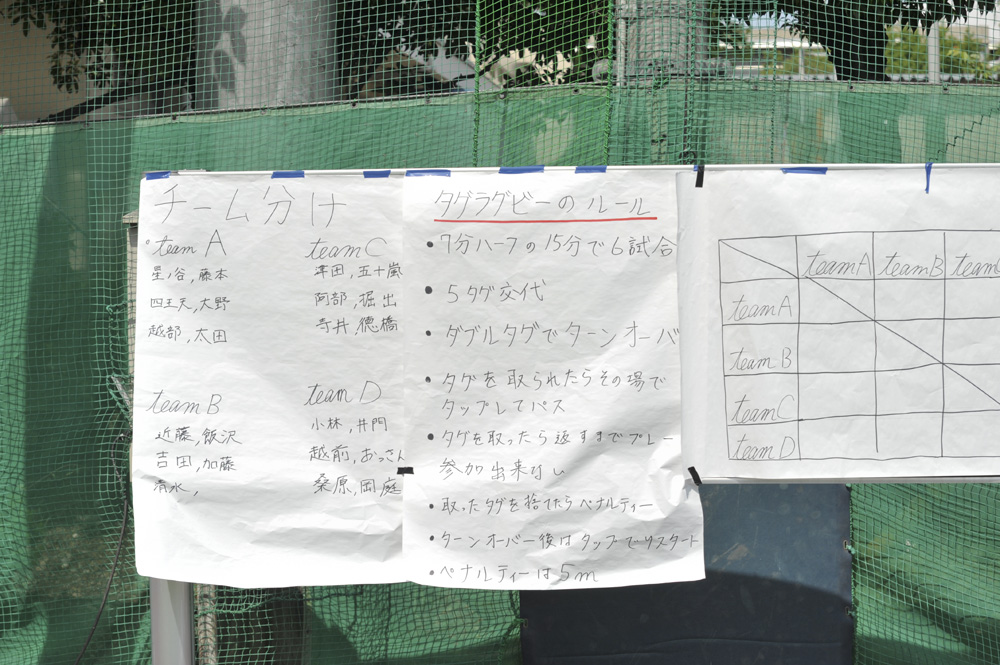 チーム分け
team A
星ノ谷, 藤本
四王天, 大野
越部, 太田
team B
近藤, 飯沢
吉田, 加藤
清水,
team C
津田, 五十嵐
阿部, 堀出
寺井, 德橋
team D
小林, 井門
越前, おっさん
桑原, 岡庭
タグラグビーのルール
•7分ハーフの15分で6試合
•5タグ交代
•ダブルタグでターンオーバ
•タグを取られたらその場で
タップしてパス
•タグを取ったら返すまでプレー
参加出来ない
•取ったタグを捨てたらペナルティー
•ターンオーバー後はタップでリスタート
•ペナルティーは5m
team A team B team C
team A
team B
team C
team D